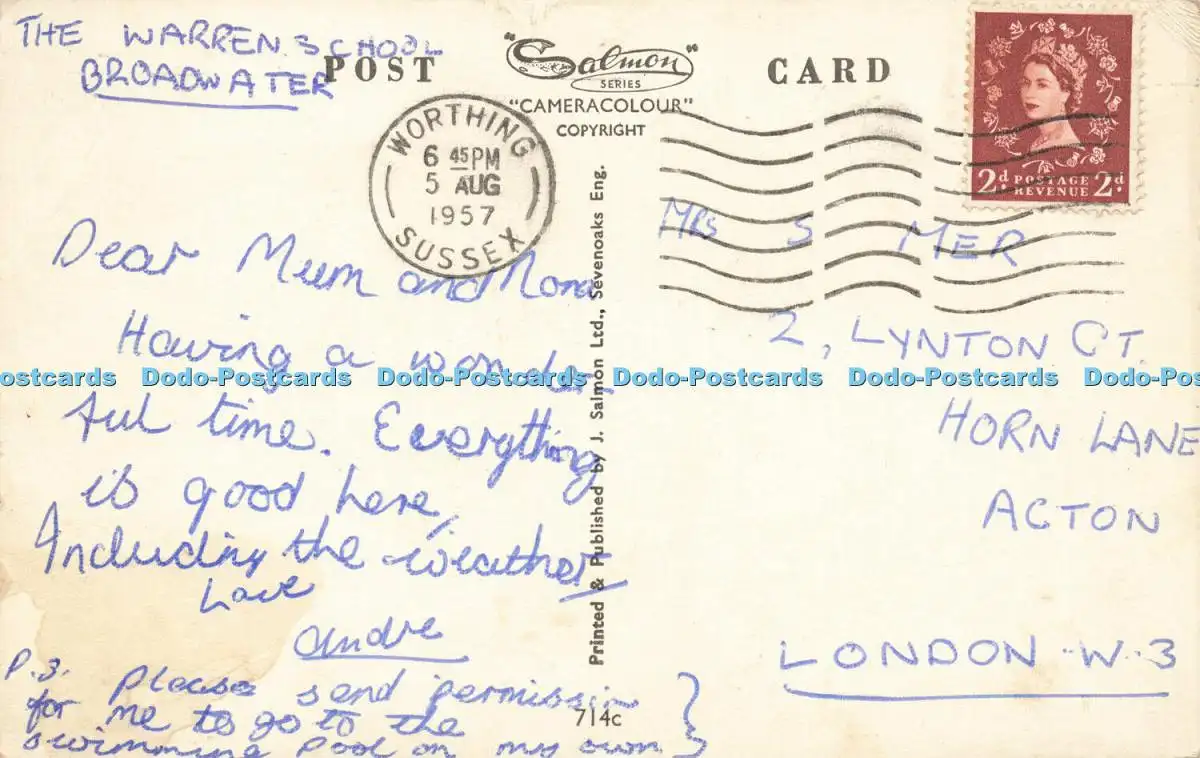 THE WARREN SCHOOL
BROADWATER
POST CARD
"Salmon"
SERIES
"CAMERACOLOUR"
COPYRIGHT
WORTHING
6 45 PM
5 AUG
1957
SUSSEX
2d POSTAGE 2d
REVENUE
Dear Mum and Nona
Having a wonder
ful time. Everything
is good here,
Including the weather
Love
Andre
P.S. please send permission
for me to go to the
swimming pool on my own
Printed & Published by J. Salmon Ltd., Sevenoaks Eng.
714c
Mrs S MER
2, LYNTON CT.
HORN LANE
ACTON
LONDON W.3
ostcards Dodo-Postcards Dodo-Postcards Dodo-Postcards Dodo-Postcards Dodo-Postc